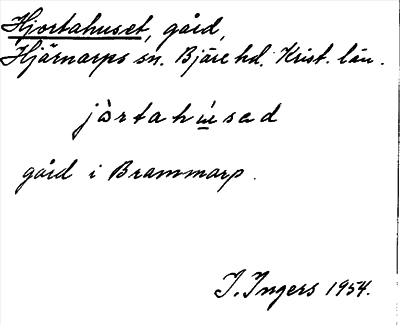 Hjortahuset, gård,
Hjärnarps sn. Bjäre hd. Krist. län.
jò̀rtahú̱sad
gård i Brammarp.
I. Ingers 1954.